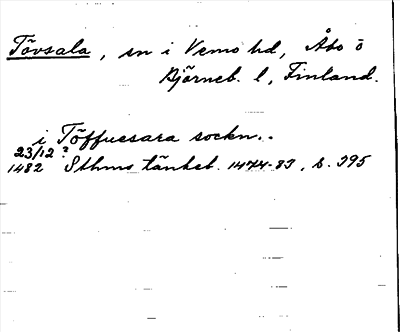 Tövsala, sn i Vemo hd, Åbo o
Björneb. l, Finland.
i Töffuesara sockn..
23/12 ?
1482 Sthms tänkeb. 1474-83, s. 395